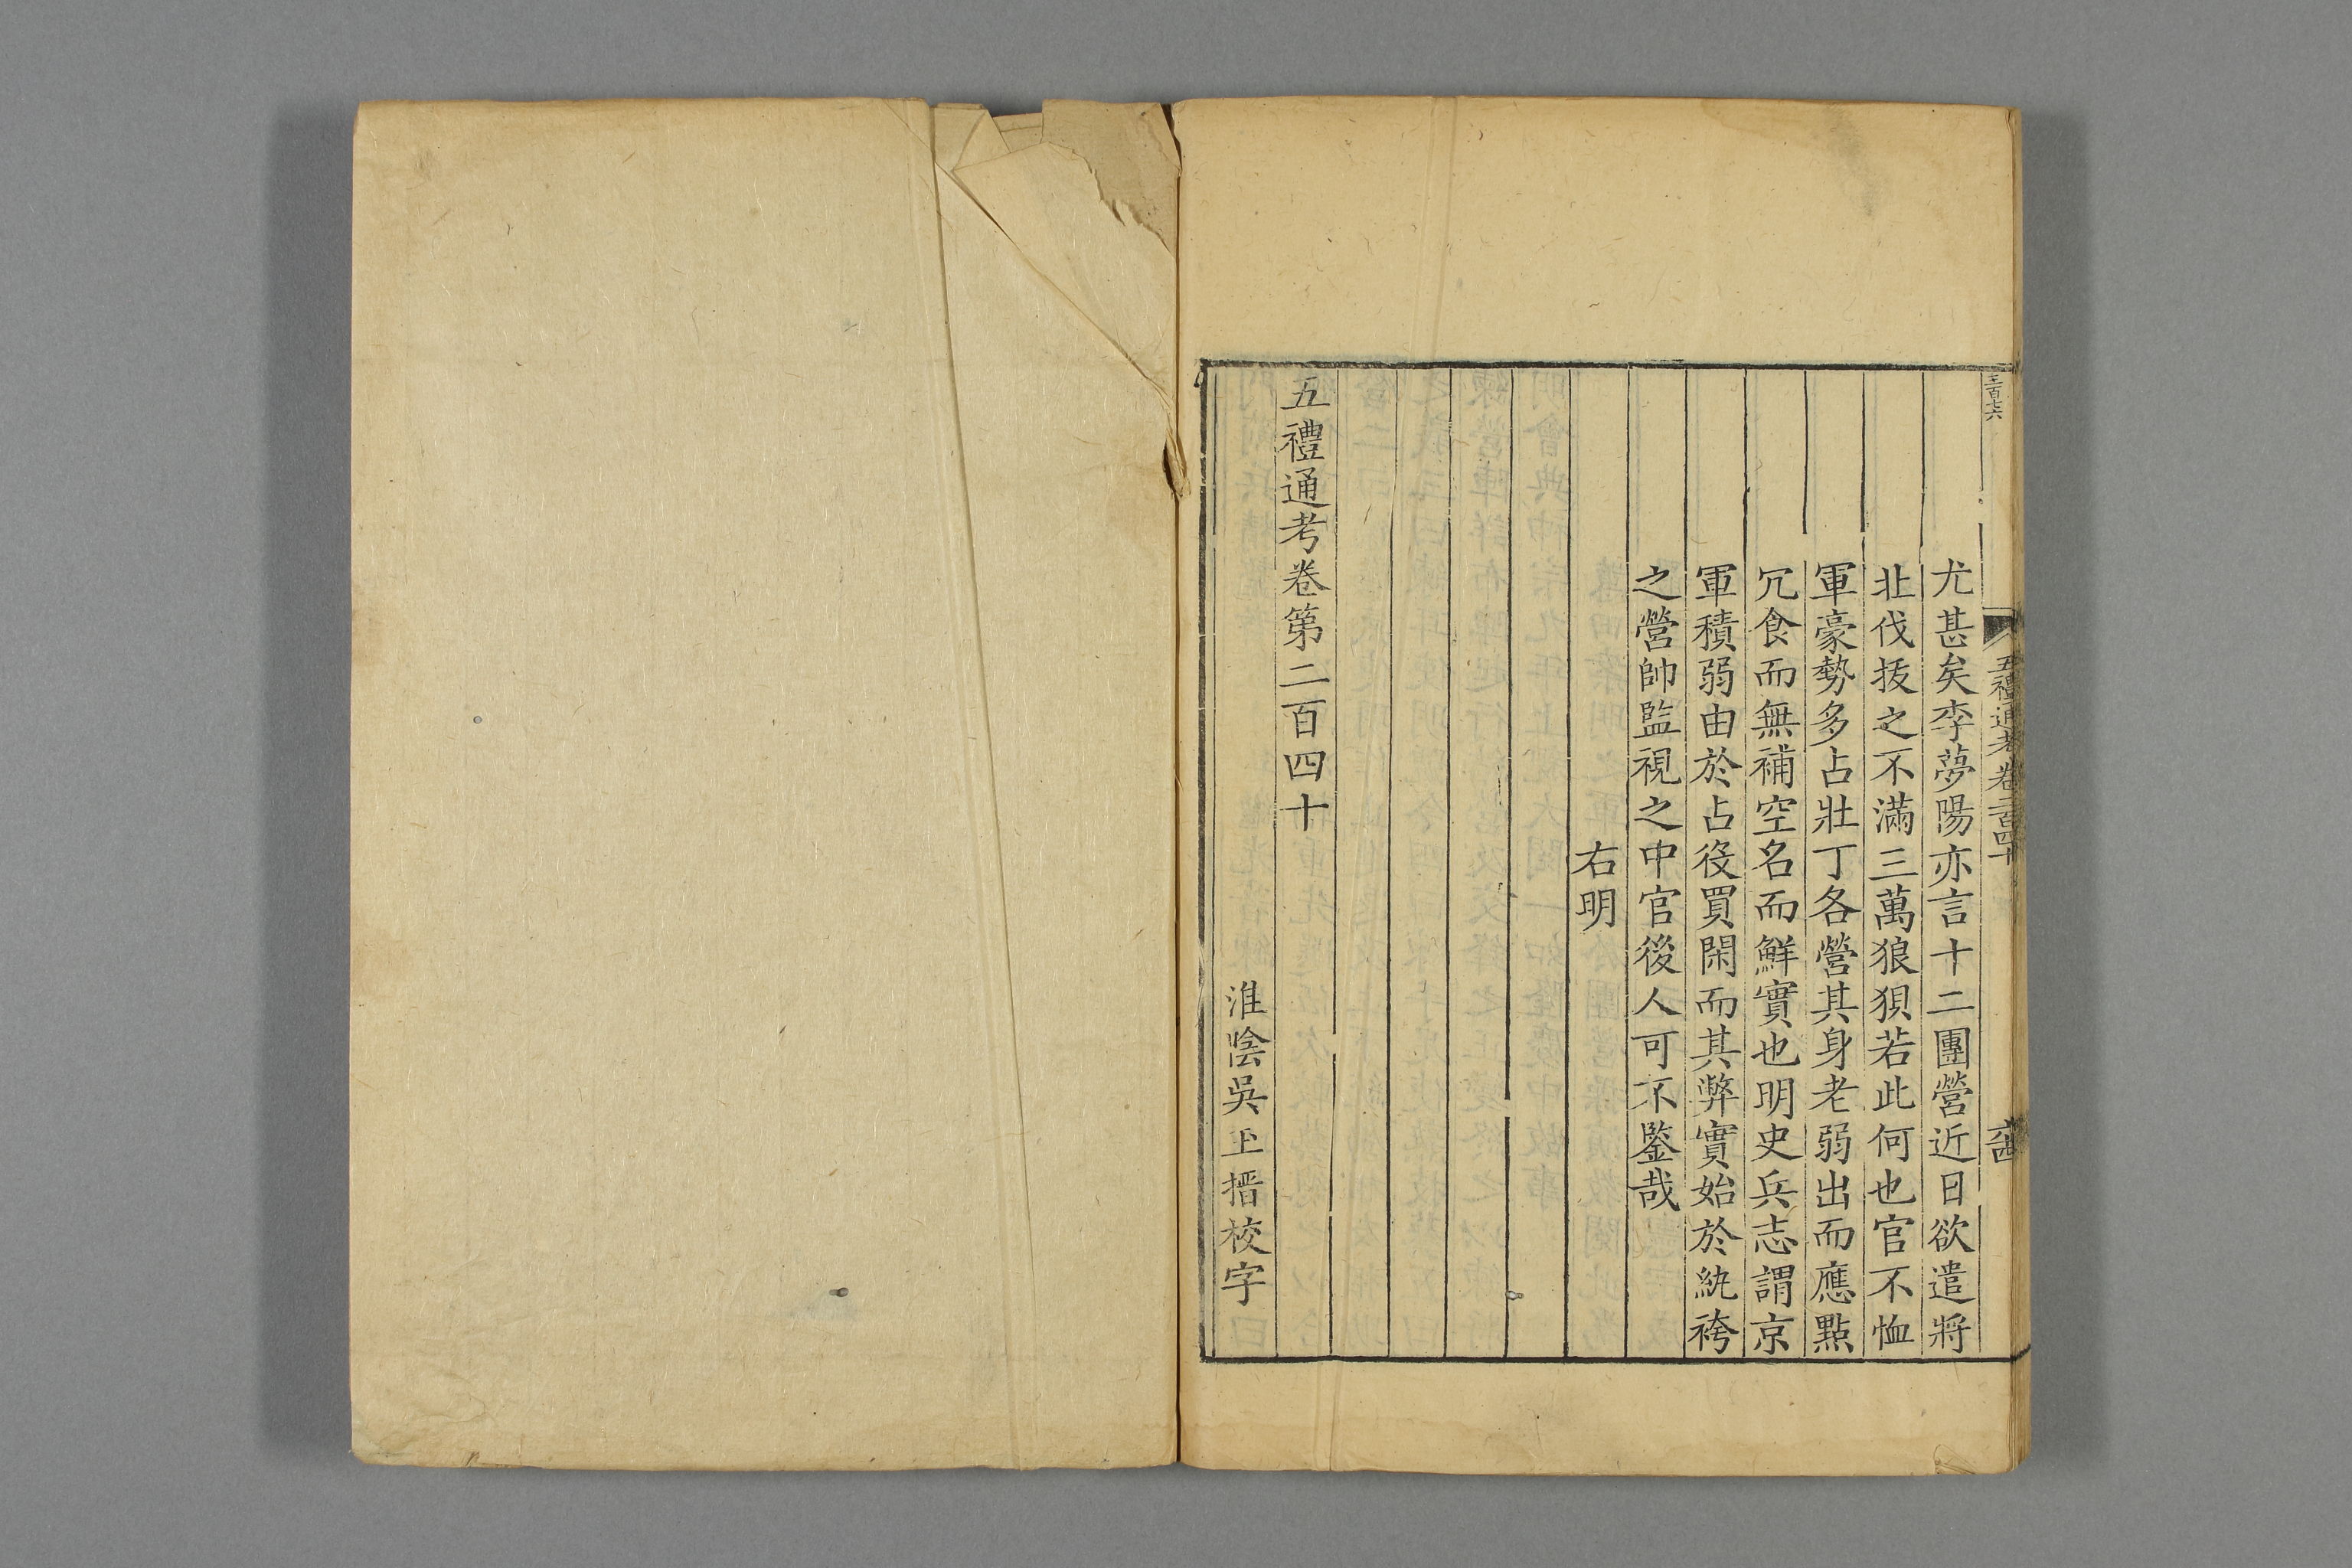 三百十六
五禮通考卷二百四十
尤甚矣李夢陽亦言十二團營近日欲遣將
北伐拔之不滿三萬狼狽若此何也官不恤
軍豪勢多占壯丁各營其身老弱出而應點
冗食而無補空名而鮮實也明史兵志謂京
軍積弱由於占役買閑而其弊實始於紈袴
之營帥監視之中官後人可不鑒哉
右明
五禮通考卷第二百四十
淮陰吳玉搢校字